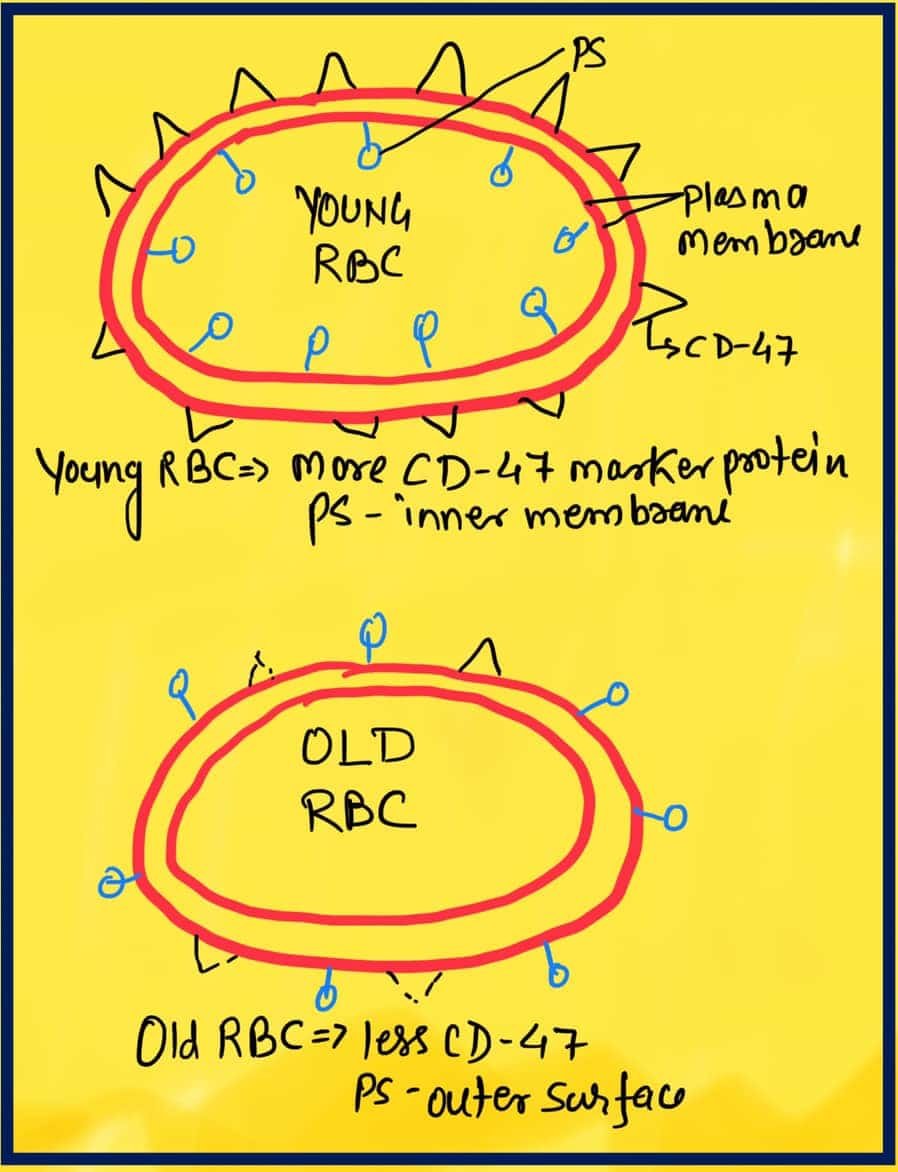 PS
YOUNG
RBC
Plasma
Membrane
CD-47
Young RBC=> More CD-47 marker protein
PS - inner membrane
OLD
RBC
Old RBC=> less CD-47
PS - outer surface